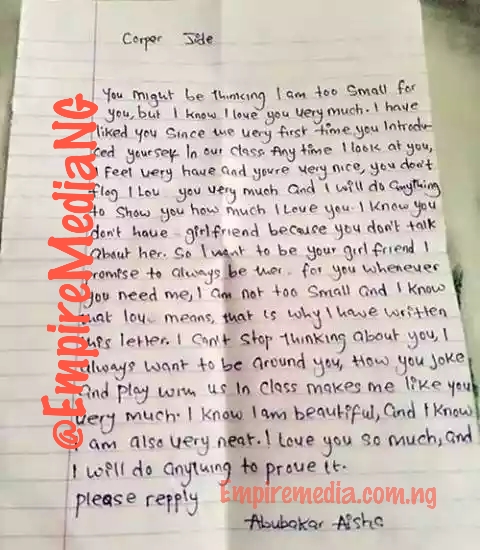 Corper Jide
You might be thinking I am too small for
you, but I know I love you very much. I have
liked you since the very first time, you introdu-
ced yourself in our class. Any time I look at you,
I feel very have and youre very nice, you don't
flog I Lov you very much and I will do anything
to show you how much I love you. I know you
don't have girlfriend because you don't talk
About her. So I want to be your girlfriend I
promise to always be ther. for you whenever
you need me, I am not too small and I know
that lov. means, that is why I have written
this letter. I can't stop thinking about you, I
always want to be around you, How you joke
and play with us in class makes me like you
very much. I know I am beautiful, and I know
I am also very neat. I love you so much, and
I will do anything to prove it.
please repply
Abubakar Aisha
@EmpireMediaNG
Empiremedia.com.ng